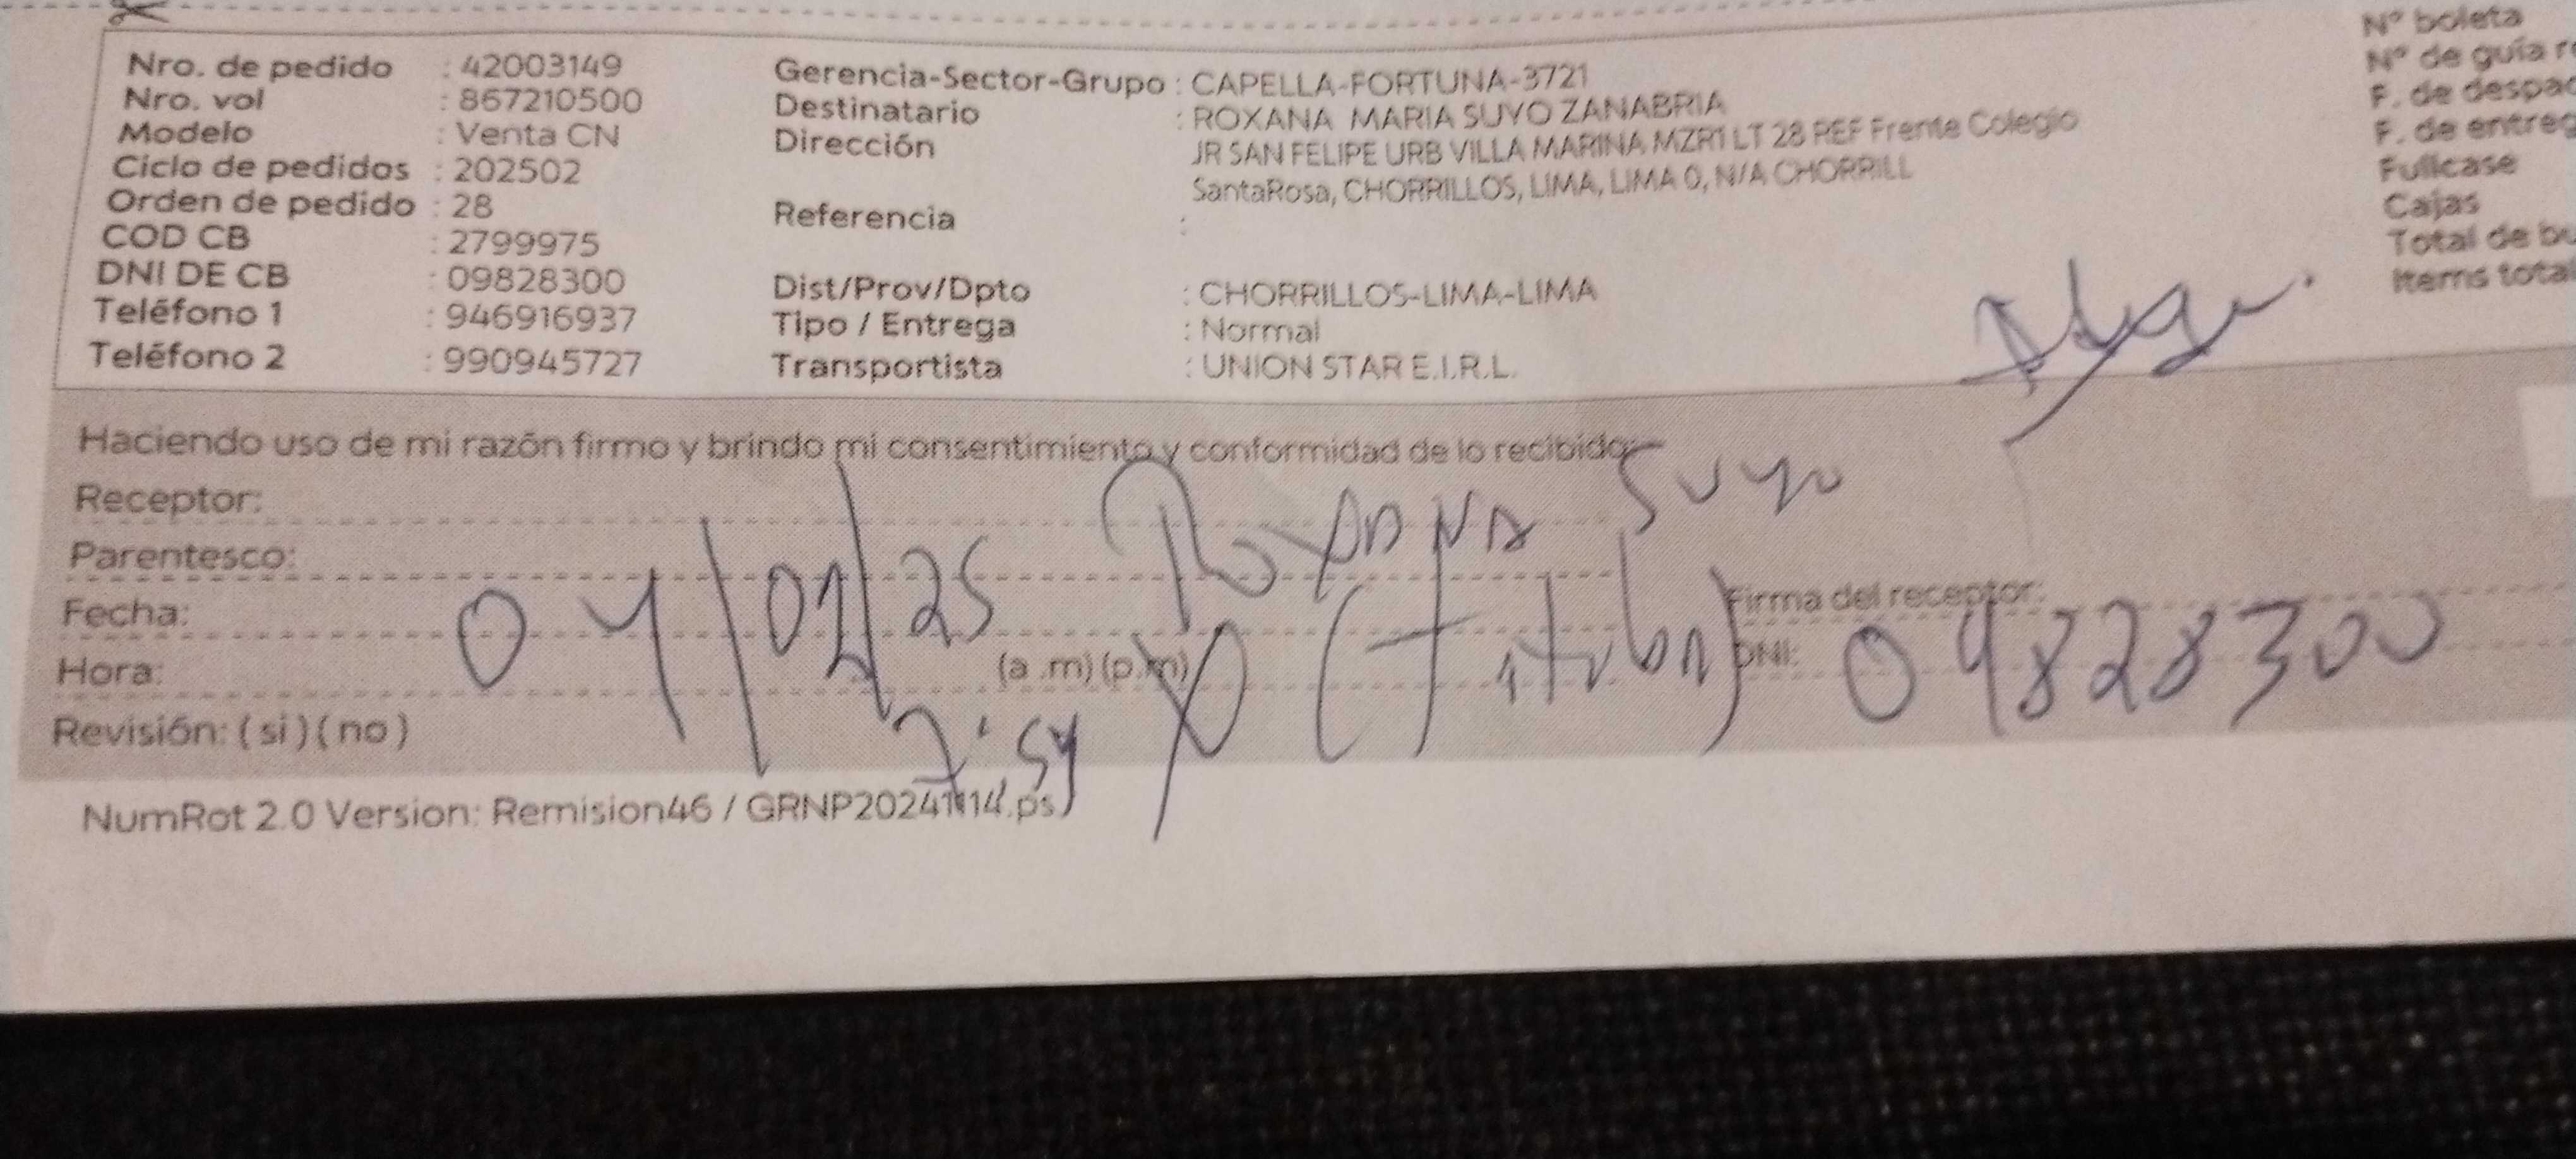 Nro. de pedido : 42003149
Nro. vol : 867210500
Modelo : Venta CN
Ciclo de pedidos : 202502
Orden de pedido : 28
COD CB : 2799975
DNI DE CB : 09828300
Teléfono 1 : 946916937
Teléfono 2 : 990945727
Gerencia-Sector-Grupo : CAPELLA-FORTUNA-3721
Destinatario : ROXANA MARIA SUYO ZANABRIA
Dirección JR SAN FELIPE URB VILLA MARINA MZR1 LT 28 REF Frente Colegio
SantaRosa, CHORRILLOS, LIMA, LIMA 0, N/A CHORRILL
Referencia :
Dist/Prov/Dpto : CHORRILLOS-LIMA-LIMA
Tipo / Entrega : Normal
Transportista : UNION STAR E.I.R.L.
Nº boleta
Nº de guía r
F. de despac
F. de entreg
Fullcase
Cajas
Total de bu
Items total
Haciendo uso de mi razón firmo y brindo mi consentimiento y conformidad de lo recibido:
Receptor: Roxana Suyo
Parentesco:
Fecha: 04/02/25 (Titular)
Firma del receptor:
Hora: 7:54 (a.m) (p.m)
DNI: 09828300
Revisión: ( si ) ( no )
NumRot 2.0 Version: Remision46 / GRNP20241114.ps